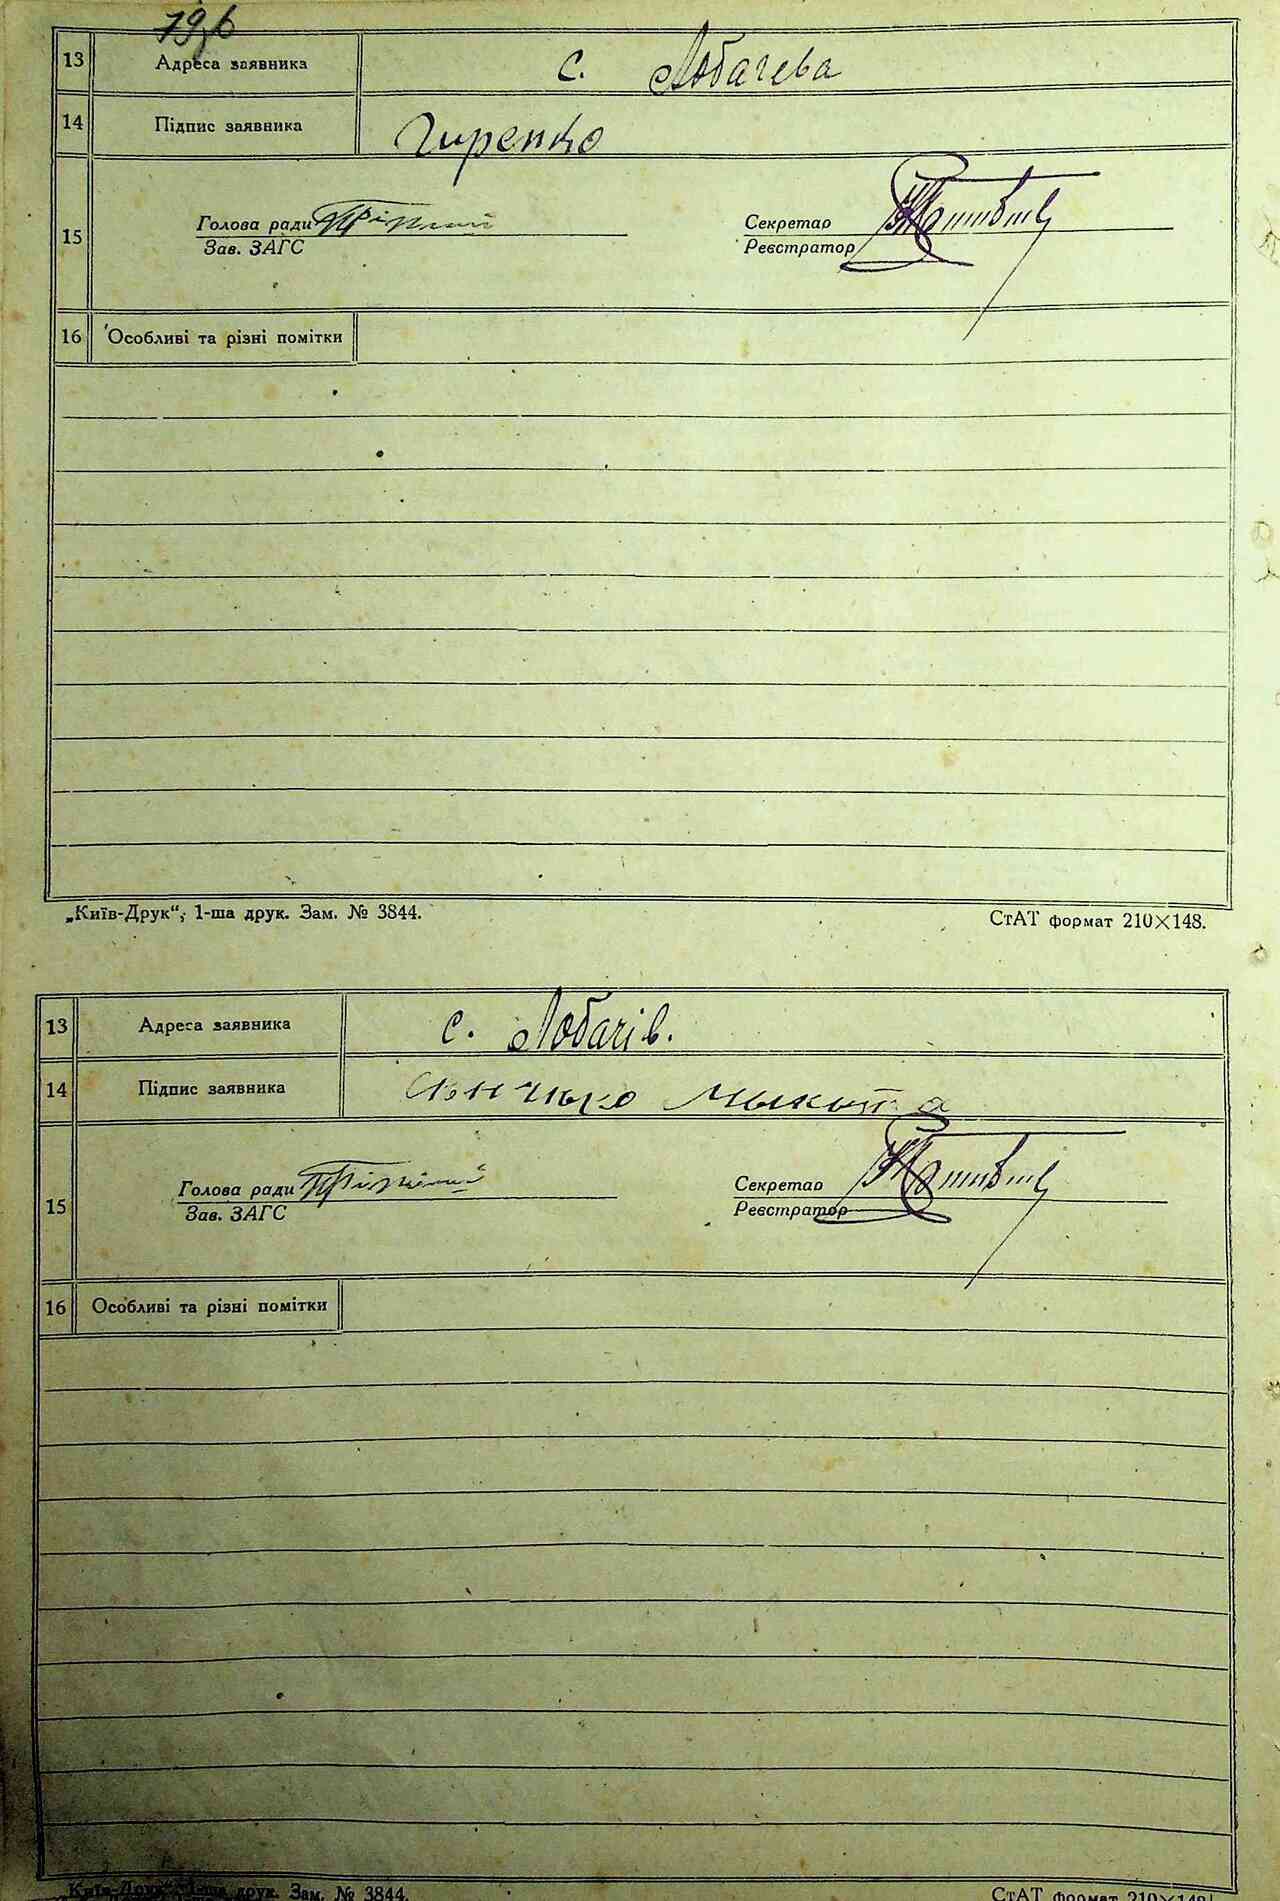 13 Адреса заявника с. Лобачева
14 Підпис заявника Гиренко
15
Голова ради
Зав. ЗАГС
Секретар
Реєстратор
16 Особливі та різні помітки
„Київ-Друк“, 1-ша друк. Зам. № 3844.
СтАТ формат 210×148.
13 Адреса заявника с. Лобачів.
14 Підпис заявника Микита
15
Голова ради
Зав. ЗАГС
Секретар
Реєстратор
16 Особливі та різні помітки
Київ-Друк“, 1-ша друк. Зам. № 3844.
СтАТ формат 210×148.